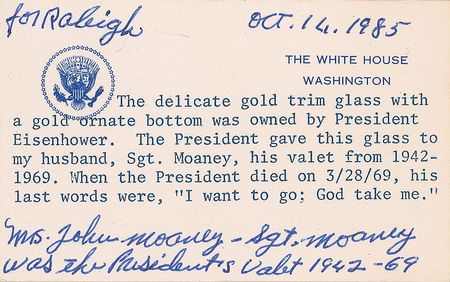 for Raleigh
Oct. 14. 1985
THE WHITE HOUSE
WASHINGTON
The delicate gold trim glass with
a gold ornate bottom was owned by President
Eisenhower. The President gave this glass to
my husband, Sgt. Moaney, his valet from 1942-
1969. When the President died on 3/28/69, his
last words were, "I want to go; God take me."
Mrs. John Moaney - Sgt. Moaney
was the President's Valet 1942-69